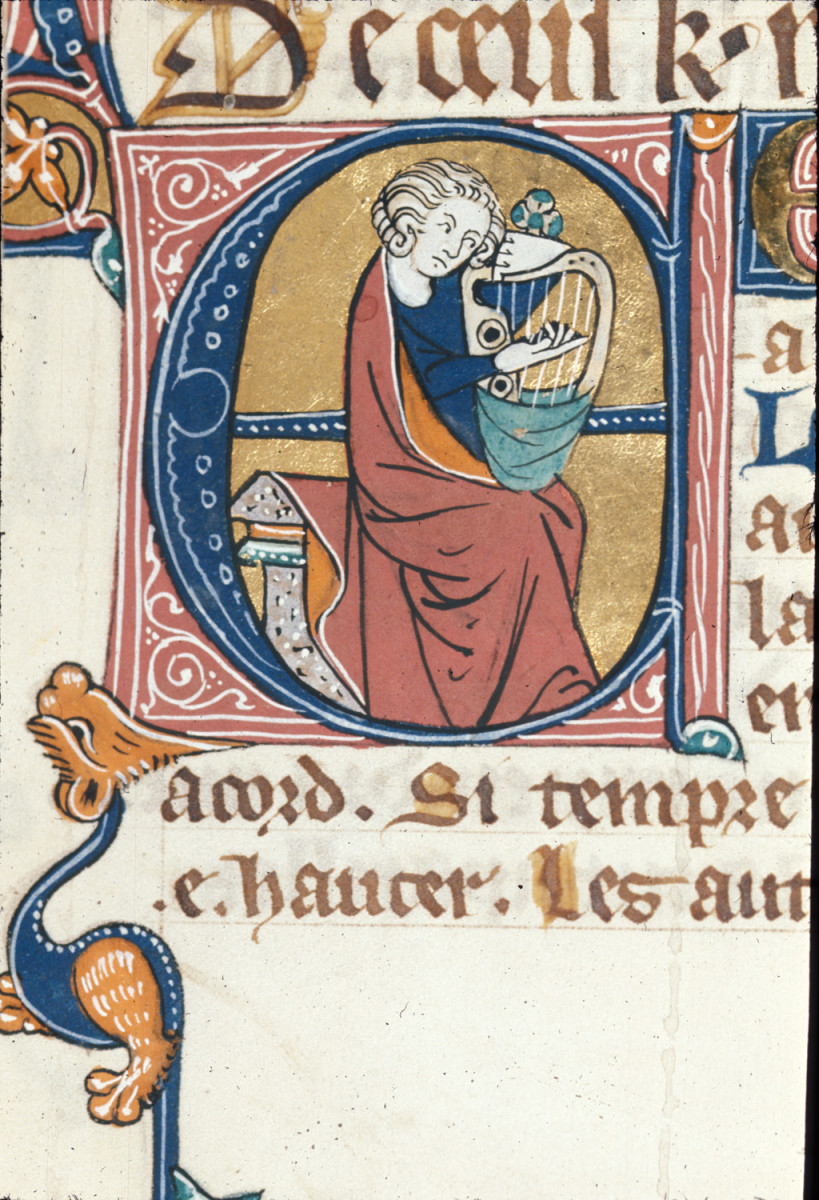 De ceul k
a
L
au
la
en
acord. Si tempre
.e. haucer. Les aut